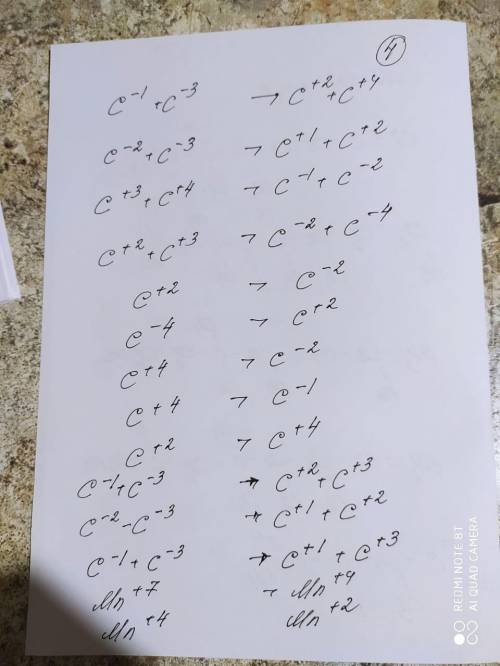 4
C⁻¹ + C⁻³ → C⁺² + C⁺⁴
C⁻² + C⁻³ → C⁺¹ + C⁺²
C⁺³ + C⁺⁴ → C⁻¹ + C⁻²
C⁺² + C⁺³ → C⁻² + C⁻⁴
C⁺² → C⁻²
C⁻⁴ → C⁺²
C⁺⁴ → C⁻²
C⁺⁴ → C⁻¹
C⁺² → C⁺⁴
C⁻¹ + C⁻³ → C⁺² + C⁺³
C⁻² - C⁻³ → C⁺¹ + C⁺²
C⁻¹ + C⁻³ → C⁺¹ + C⁺³
Mn⁺⁷ → Mn⁺⁴
Mn⁺⁴ Mn⁺²
REDMI NOTE 8T
AI QUAD CAMERA